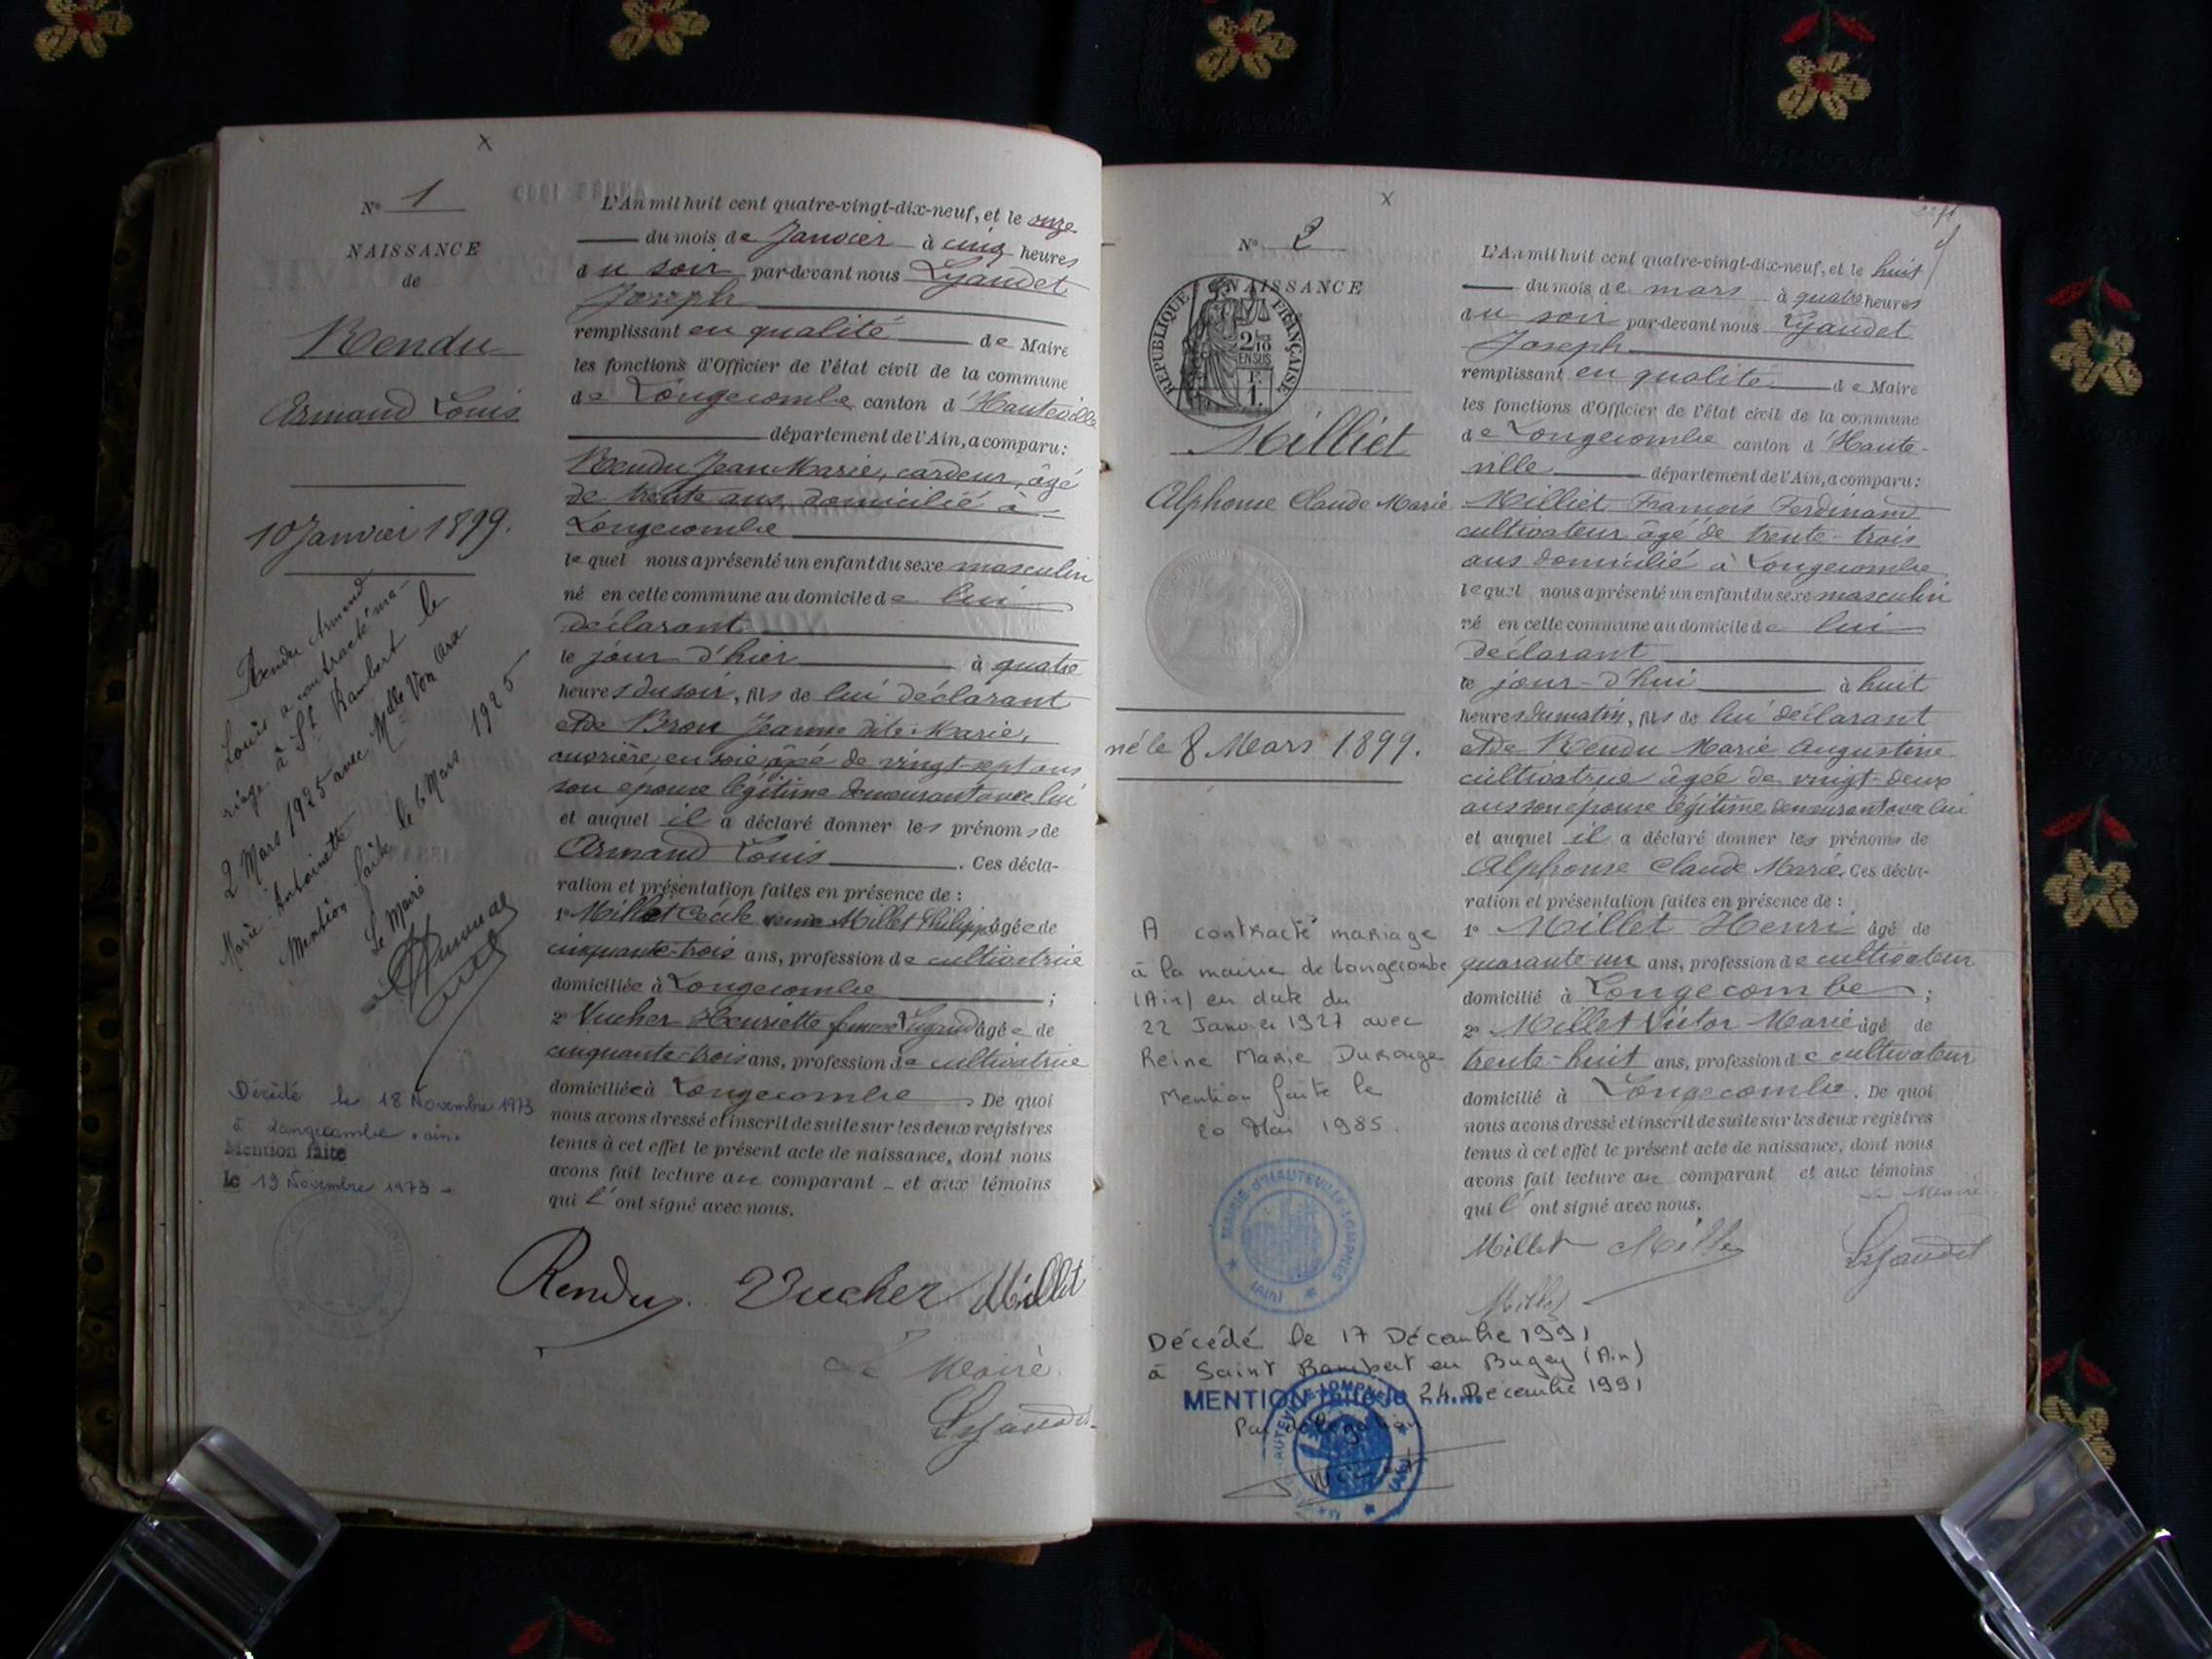 N° 1
NAISSANCE
de
Rendu
Armand Louis
10 Janvier 1899.
Rendu Armand
Louis a contracté ma-
riage à St Rambert le
2 Mars 1925 avec Melle Von Arx
Marie Antoinette
Mention faite le 6 Mars 1925
Le Maire
Décédé le 18 Novembre 1973
à Longecombe Ain.
Mention faite
le 19 Novembre 1973 -
L'An mil huit cent quatre-vingt-dix-neuf, et le onze
du mois de Janvier à cinq heures
du soir par-devant nous Lyaudet
Joseph
remplissant en qualité de Maire
les fonctions d'Officier de l'état civil de la commune
de Longecombe canton d'Hauteville
département de l'Ain, a comparu :
Rendu Jean Marie, cardeur, âgé
de trente ans, domicilié à
Longecombe
lequel nous a présenté un enfant du sexe masculin
né en cette commune au domicile de lui
déclarant
le jour d'hier à quatre
heures du soir, fils de lui déclarant
et de Bron Jeanne dite Marie,
ouvrière en soie, âgée de vingt-sept ans
son épouse légitime demeurant avec lui
et auquel il a déclaré donner les prénoms de
Armand Louis. Ces décla-
ration et présentation faites en présence de :
1° Millet Cécile veuve Millet Philippe âgée de
cinquante-trois ans, profession de cultivatrice
domiciliée à Longecombe ;
2° Vucher Henriette femme âgée de
cinquante-trois ans, profession de cultivatrice
domiciliée à Longecombe. De quoi
nous avons dressé et inscrit de suite sur les deux registres
tenus à cet effet le présent acte de naissance, dont nous
avons fait lecture au comparant et aux témoins
qui l'ont signé avec nous.
Rendu Vucher Millet
Le Maire
Lyaudet
N° 2
NAISSANCE
RÉPUBLIQUE FRANÇAISE
2/10
EN SUS
F.
1.
Milliet
Alphonse Claude Marie
né le 8 Mars 1899.
A contracté mariage
à la mairie de Longecombe
(Ain) en date du
22 Janvier 1927 avec
Reine Marie Durouge
Mention faite le
20 Mai 1985.
MAIRIE D'HAUTEVILLE-LOMPNES
(Ain)
L'An mil huit cent quatre-vingt-dix-neuf, et le huit
du mois de mars à quatre heures
du soir par-devant nous Lyaudet
Joseph
remplissant en qualité de Maire
les fonctions d'Officier de l'état civil de la commune
de Longecombe canton d'Haute-
ville département de l'Ain, a comparu :
Milliet François Ferdinand
cultivateur âgé de trente-trois
ans domicilié à Longecombe
lequel nous a présenté un enfant du sexe masculin
né en cette commune au domicile de lui
déclarant
le jour-d'hui à huit
heures du matin, fils de lui déclarant
et de Rendu Marie Augustine
cultivatrice âgée de vingt-deux
ans son épouse légitime demeurant avec lui
et auquel il a déclaré donner les prénoms de
Alphonse Claude Marie. Ces décla-
ration et présentation faites en présence de :
1° Millet Henri âgé de
quarante-un ans, profession de cultivateur
domicilié à Longecombe ;
2° Millet Victor Marie âgé de
trente-huit ans, profession de cultivateur
domicilié à Longecombe. De quoi
nous avons dressé et inscrit de suite sur les deux registres
tenus à cet effet le présent acte de naissance, dont nous
avons fait lecture au comparant et aux témoins
qui l'ont signé avec nous.
Le Maire
Millet Millet Lyaudet
Millet
Décédé le 17 Décembre 1991
à Saint Rambert en Bugey (Ain)
MENTION faite le 24 Décembre 1991
Par délégation